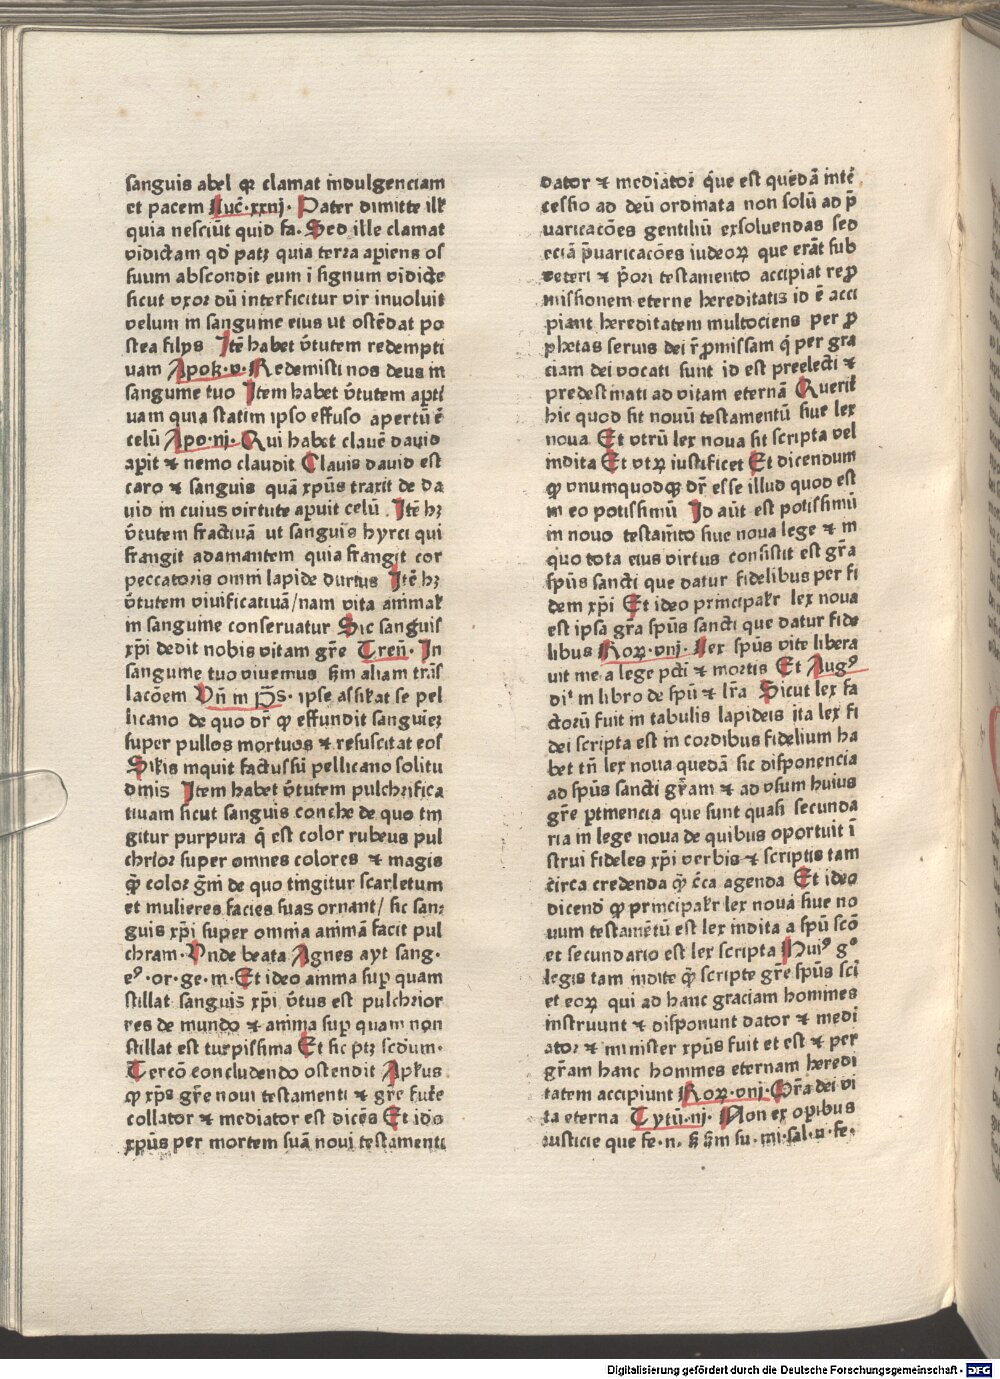 sanguis abel qꝛ clamat indulgenciam
et pacem Luc̄·xxiij· Pater dimitte ill'
quia nesciūt quid fa. Sed ille clamat
vīdictam qd̓ patꝫ quia terra apiens os
suum abscondit eum ī signum vīdicte
sicut vxor dū interficitur vir inuoluit
velum in sanguine eius ut ostēdat po
stea filijs Itē habet v̓tutem redempti
uam Apok·v· Redemisti nos deus in
sanguine tuo Item habet v̓tutem aꝑti
uam quia statim ipso effuso apertū ē
celū Apo·iij· Qui habet clauē dauid
aꝑit ⁊ nemo claudit Clauis dauid est
caro ⁊ sanguis quā xp̄us traxit de da
uid in cuius virtute aꝑuit celū Itē hꝫ
v̓tutem fractiuā ut sanguis hyrci qui
frangit adamantem quia frangit cor
peccatoris omni lapide durius Itē hꝫ
v̓tutem viuificatiuā/nam vita animal'
in sanguine conseruatur Sic sanguis
xp̄i dedit nobis vitam gr̄e Treñ· In
sanguine tuo viuemus ẜm aliam trās
lacōem Vñ in P̄s· ipse assil'at se pel
licano de quo dr̄ ꝙ effundit sanguiez
super pullos mortuos ⁊ resuscitat eos
Sil'is inquit factus sū pellicano solitu
dinis Item habet v̓tutem pulchrifica
tiuam sicut sanguis conche de quo tin
gitur purpura q̄ est color rubeus pul
chrior super omnes colores ⁊ magis
ꝙ̄ color g̃ni de quo tingitur scarletum
et mulieres facies suas ornant/ sic san⸗
guis xp̄i super omnia animā facit pul
chram· Vnde beata Agnes ayt sang·
eꝰ·or·ge·m·Et ideo anima suꝑ quam
stillat sanguis xp̄i v̓tus est pulchrior
res de mundo ⁊ anima suꝑ quam non
stillat est turpissima Et sic ptꝫ scdum·
Tercō concludendo ostendit Apl'us
ꝙ xp̄s gr̄e noui testamenti ⁊ gr̄e future
collator ⁊ mediator est dicēs Et ido
xp̄us per mortem suā noui testamenti
dator ⁊ mediator que est quedā inte͛
cessio ad deū ordinata non solū ad p̄
uaricacōes gentiliū exsoluendas sed
eciā p̄uaricacōes iudeoꝝ que erāt sub
veteri ⁊ p̓ori testamento accipiat reꝓ
missionem eterne hereditatis id ē acci
piant hereditatem multociens per ꝓ
phetas seruis dei rꝓmissam q̄ per gra
ciam dei vocati sunt id est preelecti ⁊
predestinati ad vitam eternā Querit'
hic quod sit nouū testamentū siue lex
noua Et vtrū lex noua sit scripta vel
indita Et vtꝝ iustificet Et dicendum
ꝙ vnumquodqꝫ dr̄ esse illud quod est
in eo potissimū Id aūt est potissimū
in nouo testam̄to siue noua lege ⁊ in
quo tota eius virtus consistit est gr̄a
sp̄us sancti que datur fidelibus per fi
dem xp̄i Et ideo principal'r lex noua
est ipsa gr̄a sp̄us sancti que datur fide
libus Roꝝ·viij· Lex sp̄us vite libera
uit me a lege pcti ⁊ mortis Et Augꝰ
di' in libro de sp̄u ⁊ lr̄a Sicut lex fa
ctorū fuit in tabulis lapideis ita lex fi
dei scripta est in cordibus fidelium ha
bet tñ lex noua quedā sic disponencia
ad sp̄us sancti gr̄am ⁊ ad vsum huius
gr̄e ꝑtinencia que sunt quasi secunda
ria in lege noua de quibus oportuit ī
strui fideles xp̄i verbis ⁊ scriptis tam
circa credenda ꝙ̄ c̄ca agenda Et ideo
dicend̄ ꝙ principal'r lex noua siue no
uum testamētū est lex indita a sp̄u scō
et secundario est lex scripta Huiꝰ g°
legis tam indite ꝙ̄ scripte gr̄e sp̄us sci̅
et eoꝝ qui ad hanc graciam homines
instruunt ⁊ disponunt dator ⁊ medi
ator ⁊ minister xp̄us fuit et est ⁊ per
gr̄am hanc homines eternam heredi
tatem accipiunt Roꝝ·viij·Gr̄a dei vi
ta eterna Tytū·iij· Non ex oꝑibus
iusticie que fe·n· ß ẜm su·mi·sal·n·fe·
Digitalisierung gefördert durch die Deutsche Forschungsgemeinschaft - DFG